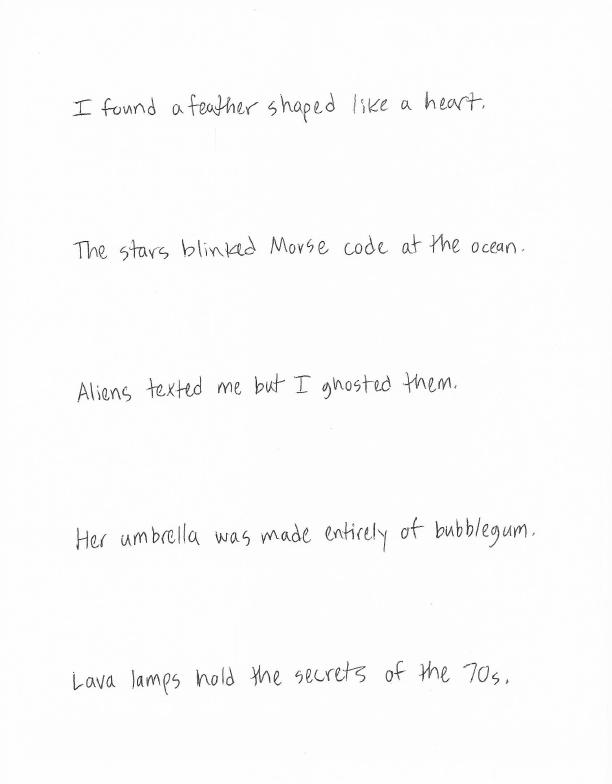 I found a feather shaped like a heart.
The stars blinked Morse code at the ocean.
Aliens texted me but I ghosted them.
Her umbrella was made entirely of bubblegum.
Lava lamps hold the secrets of the 70s.